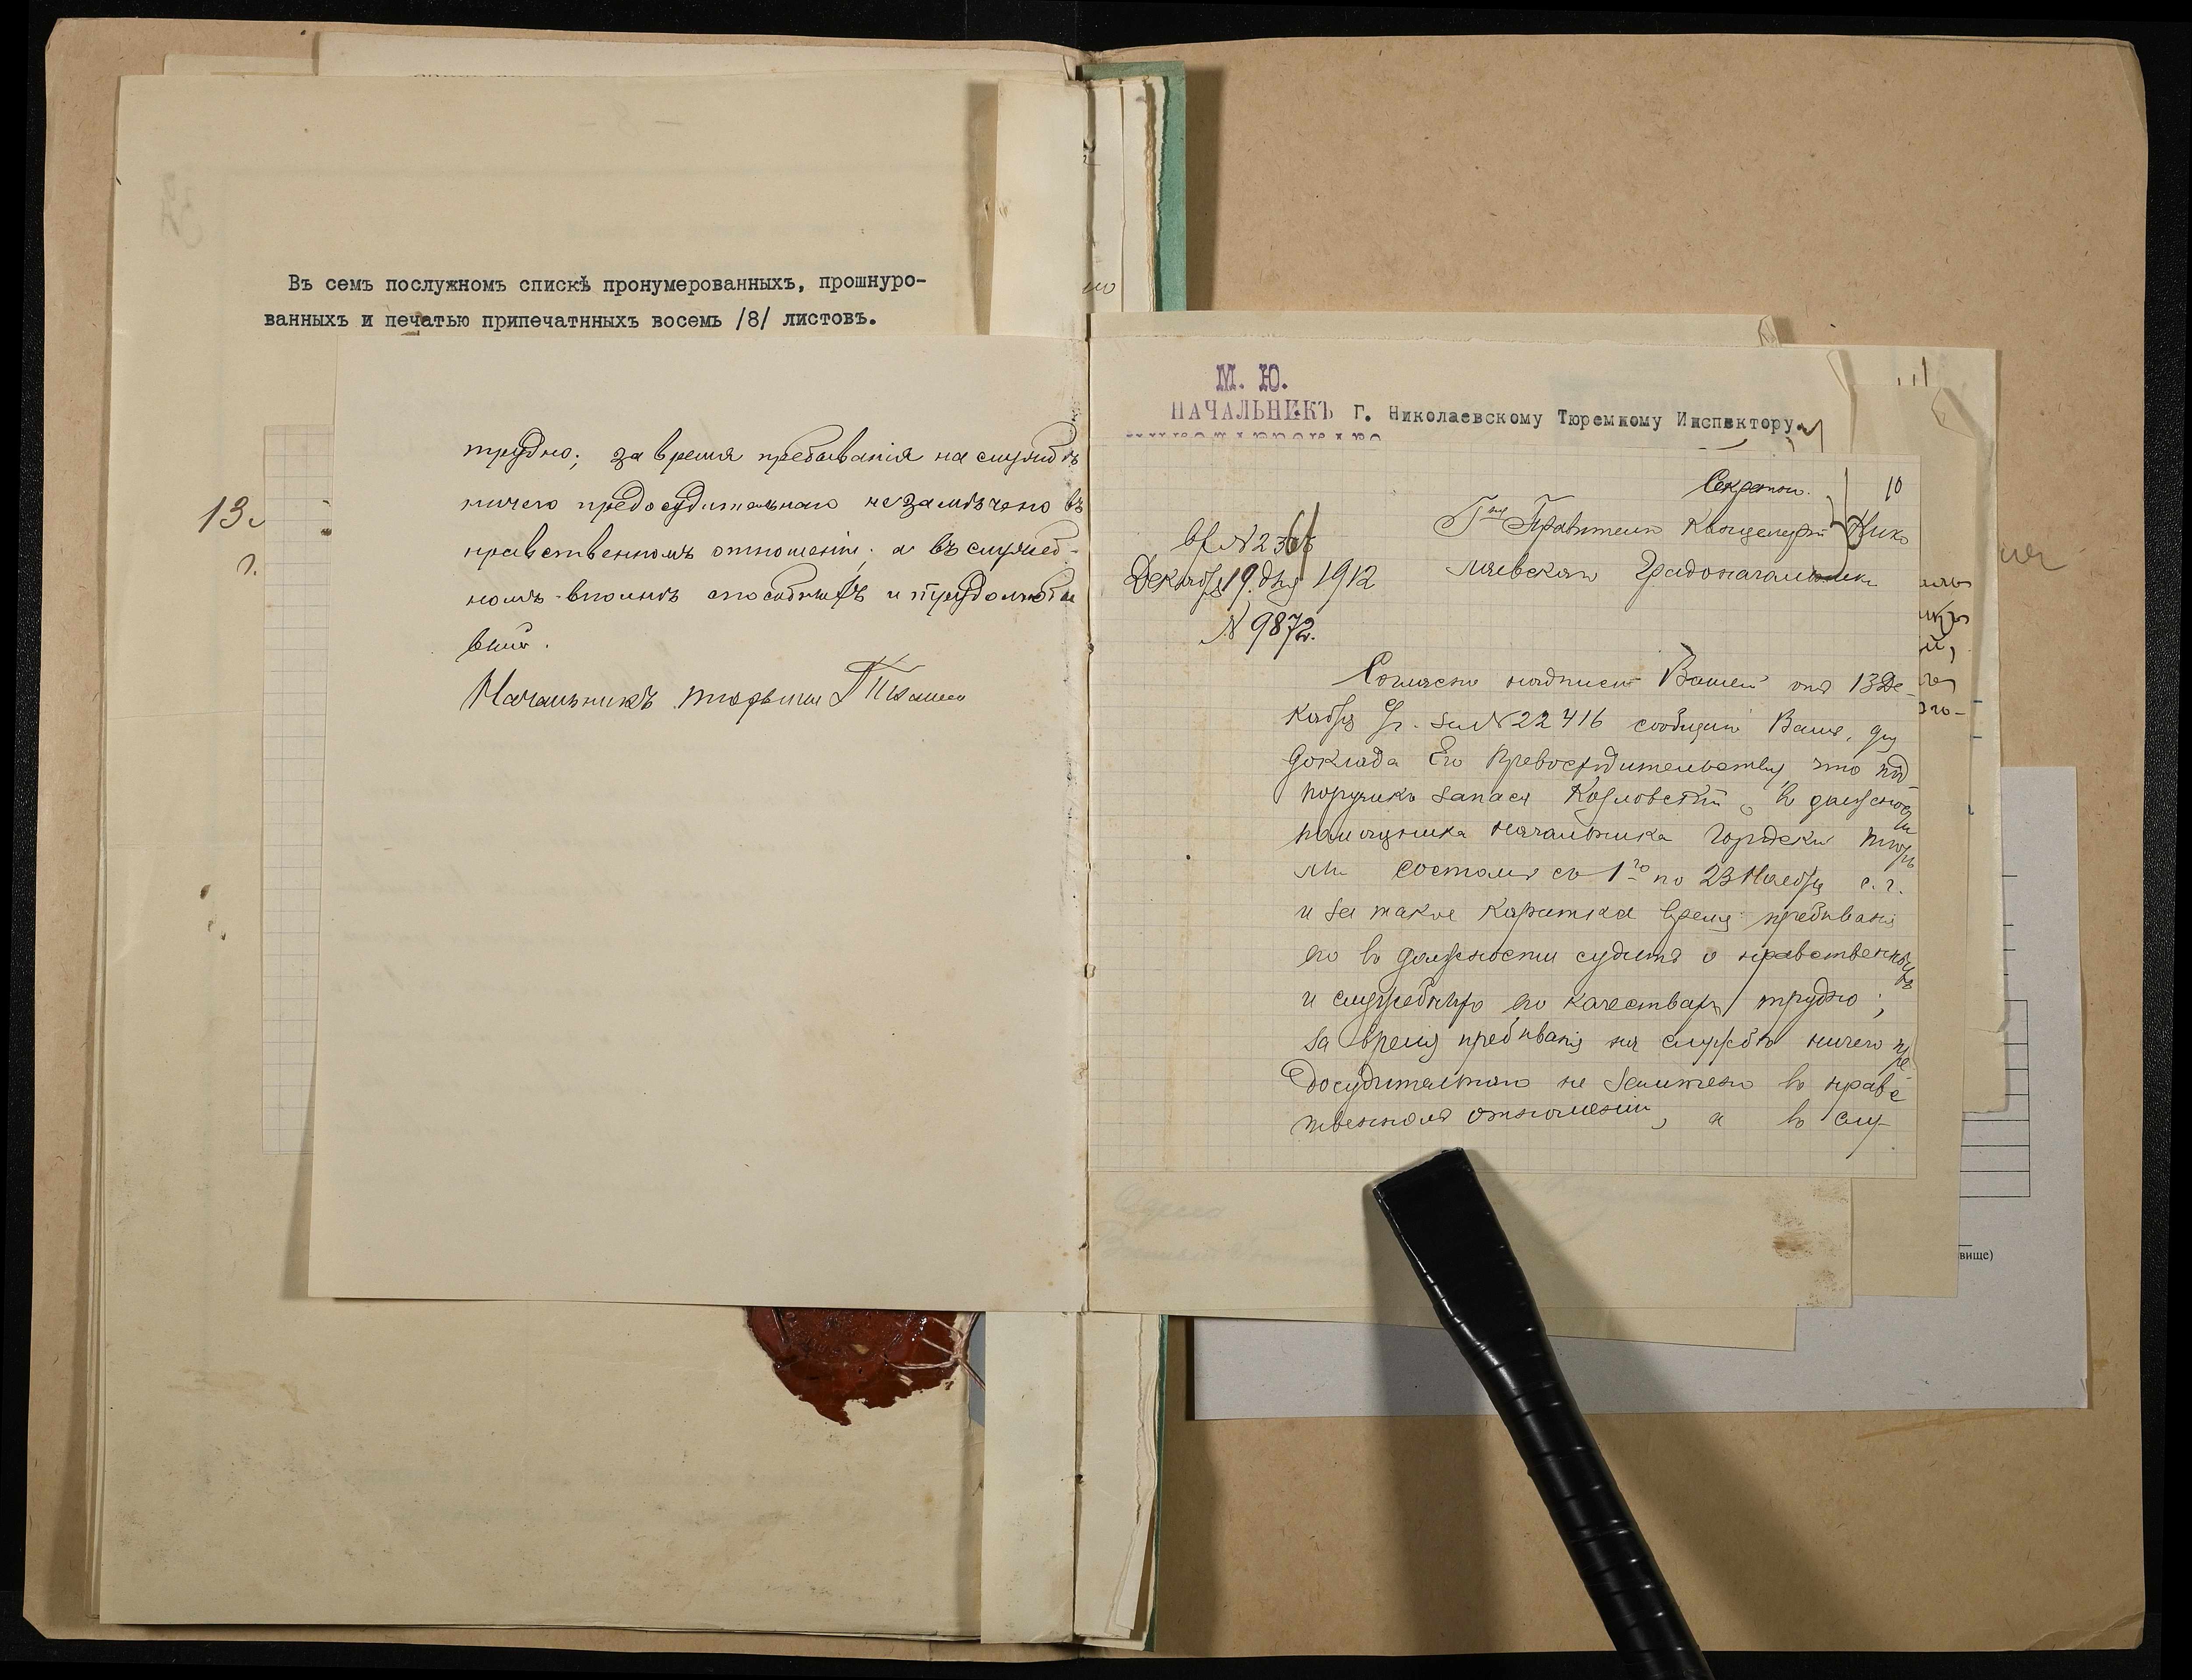 Въ семъ послужномъ спискѣ пронумерованныхъ, прошнуро-
ванныхъ и печатью припечатнныхъ восемь /8/ листовъ.
13.
г.
трудно; за время пребыванія на службѣ
ничего предосудительнаго не замѣчено въ
нравственномъ отношеніи; а въ служеб-
номъ вполнѣ способный и трудолюби
вый.
Начальникъ тюрьмы
М. Ю.
НАЧАЛЬНИКЪ
Г. Николаевскому Тюремному Инспектору.
Секретно.
10
Правителю Канцеляріи Нико
лаевскаго Градоначальника
Декабря 19 дня 1912
N 9872.
Согласно надписи Вашей отъ 13 Де-
кабря за N 22416 сообщаю Вамъ, для
доклада Его Превосходительству, что под
поручикъ запаса Козловскій, въ должности
помощника начальника Городской тюрь
мы состоялъ съ 1го по 23 Ноября с. г.
и за такое короткое время пребыванія
его въ должности судить о нравственныхъ
и служебныхъ его качествахъ трудно;
за время пребыванія на службѣ ничего пре
досудительнаго не замѣчено въ нравс
твенномъ отношеніи, а въ слу-
вище)